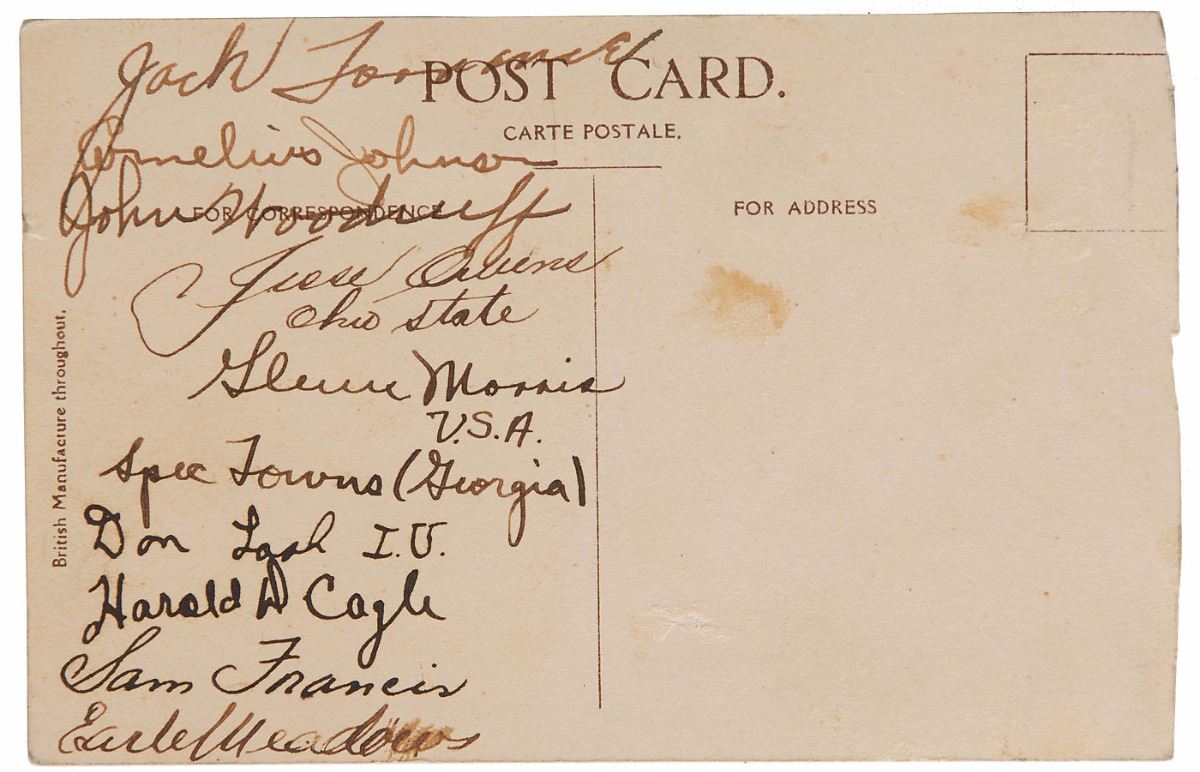 Jack Torrance
POST CARD.
CARTE POSTALE.
Cornelius Johnson
John Woodruff
FOR CORRESPONDENCE
FOR ADDRESS
Jesse Owens
Ohio State
Glenn Morris
U.S.A.
Spec Towns (Georgia)
Don Lash I.U.
Harold D Cagle
Sam Francis
Earle Meadows
British Manufacture throughout.